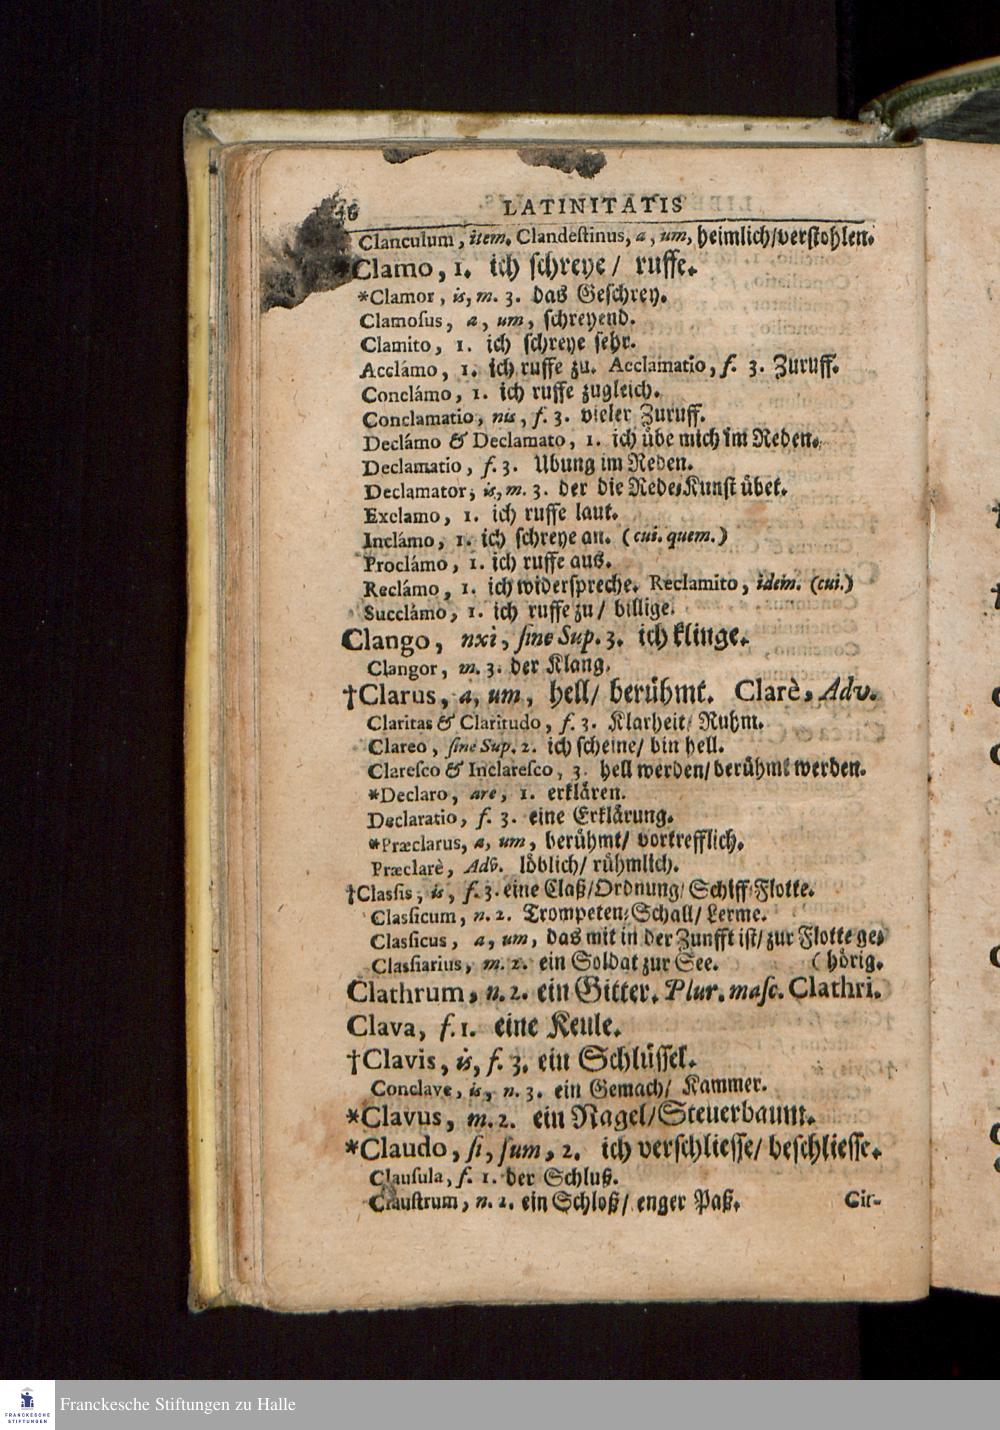 46 LATINITATIS
Clanculum, item. Clandeſtinus, a, um, heimlich/verſtohlen.
Clamo, 1. ich ſchreye/ ruffe.
*Clamor, is, m. 3. das Geſchrey.
Clamoſus, a, um, ſchreyend.
Clamito, 1. ich ſchreye ſehr.
Acclámo, 1. ich ruffe zu. Acclamatio, f. 3. Zuruff.
Conclámo, 1. ich ruffe zugleich.
Conclamatio, nis, f. 3. vieler Zuruff.
Declámo & Declamato, 1. ich übe mich im Reden.
Declamatio, f. 3. Ubung im Reden.
Declamator, is, m. 3. der die Rede-Kunſt übet.
Exclamo, 1. ich ruffe laut.
Inclámo, 1. ich ſchreye an. (cui. quem.)
Proclámo, 1. ich ruffe aus.
Reclámo, 1. ich widerſpreche. Reclamito, idem. (cui.)
Succlámo, 1. ich ruffe zu/ billige.
Clango, nxi, ſine Sup. 3. ich klinge.
Clangor, m. 3. der Klang.
†Clarus, a, um, hell/ berühmt. Clarè, Adv.
Claritas & Claritudo, f. 3. Klarheit/ Ruhm.
Clareo, ſine Sup. 2. ich ſcheine/ bin hell.
Clareſco & Inclareſco, 3. hell werden/ berühmt werden.
*Declaro, are, 1. erklären.
Declaratio, f. 3. eine Erklärung.
*Præclarus, a, um, berühmt/ vortrefflich.
Præclarè, Adv. löblich/ rühmlich.
†Claſſis, is, f. 3. eine Claß/Ordnung/ Schiff-Flotte.
Claſſicum, n. 2. Trompeten-Schall/ Lerme.
Claſſicus, a, um, das mit in der Zunfft iſt/ zur Flotte ge-
Claſſiarius, m. 2. ein Soldat zur See. (hörig.
Clathrum, n. 2. ein Gitter. Plur. maſc. Clathri.
Clava, f. 1. eine Keule.
†Clavis, is, f. 3. ein Schlüſſel.
Conclave, is, n. 3. ein Gemach/ Kammer.
*Clavus, m. 2. ein Nagel/Steuerbaum.
*Claudo, ſi, ſum, 2. ich verſchlieſſe/ beſchlieſſe.
Clauſula, f. 1. der Schluß.
Clauſtrum, n. 2. ein Schloß/ enger Paß. Cir-
Franckesche Stiftungen zu Halle
FRANCKESCHE
STIFTUNGEN